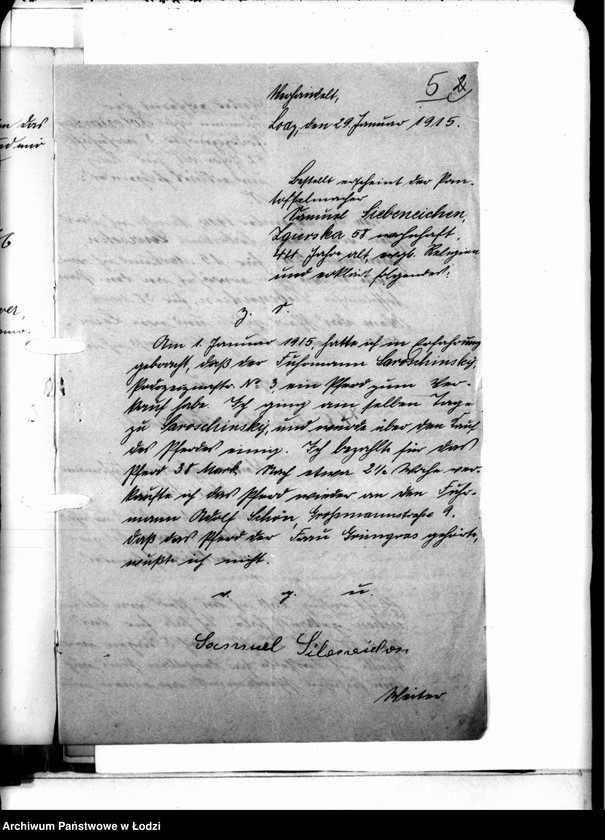 5 2
Verhandelt,
Lodz, den 29. Januar 1915.
Bestellt erscheint der Pan-
toffelmacher
Samuel Siebeneichen,
Zgierska 58 wohnhaft,
44 Jahre alt, Religion
und erklärt folgendes:
z. S.
Am 1. Januar 1915, hatte ich in Erfahrung
gebracht, daß der Fuhrmann Saroschinsky,
No 3, ein Pferd zum Ver-
kauf habe. Ich ging am selben Tage
zu Saroschinsky, und wurde über den Kauf
des Pferdes einig. Ich bezahlte für das
Pferd 38 Mark. Nach etwa 2½ Woche ver-
kaufte ich das Pferd wieder an den Fuhr-
mann Adolf Schön, Großmannstraße 9.
daß das Pferd der Frau Grüngras gehörte,
wußte ich nicht.
v. g. u.
Samuel
Weiter
Archiwum Państwowe w Łodzi